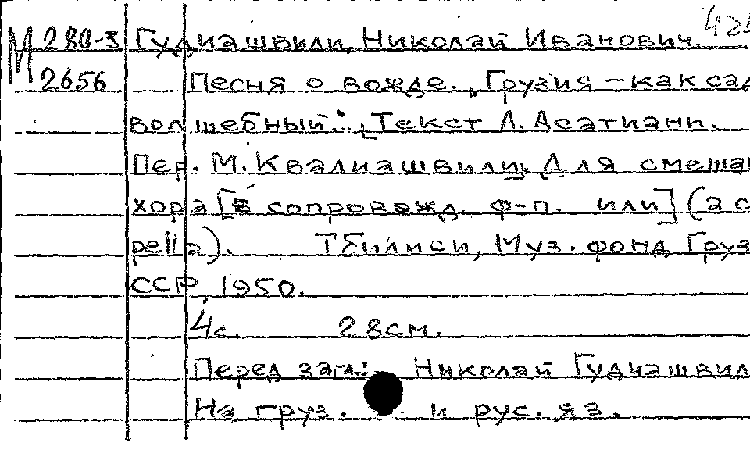 М 280-3 Гудиашвили, Николай Иванович.
2656 Песня о вожде. „Грузия – как сад
волшебный". Текст Л. Асатиани.
Пер. М. Квалиашвили. Для смешан
хора [в сопровожд. ф-п. или] (a c
pella). Тбилиси, Муз. фонд Груз
ССР, 1950.
4с. 28см.
Перед загл.: Николай Гудиашвил
На груз. и рус. яз.